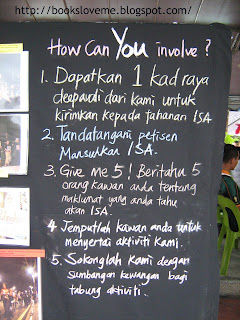 http://booksloveme.blogspot.com/
How Can You involve?
1. Dapatkan 1 kad raya
deepavali dari kami untuk
kirimkan kepada tahanan ISA
2. Tandatangani petisen
Mansuhkan ISA.
3. Give me 5! Beritahu 5
orang kawan anda tentang
maklumat yang anda tahu
akan ISA.
4. Jemputlah kawan anda untuk
menyertai aktiviti kami.
5. Sokonglah kami dengan
Sumbangan kewangan bagi
tabung aktiviti.